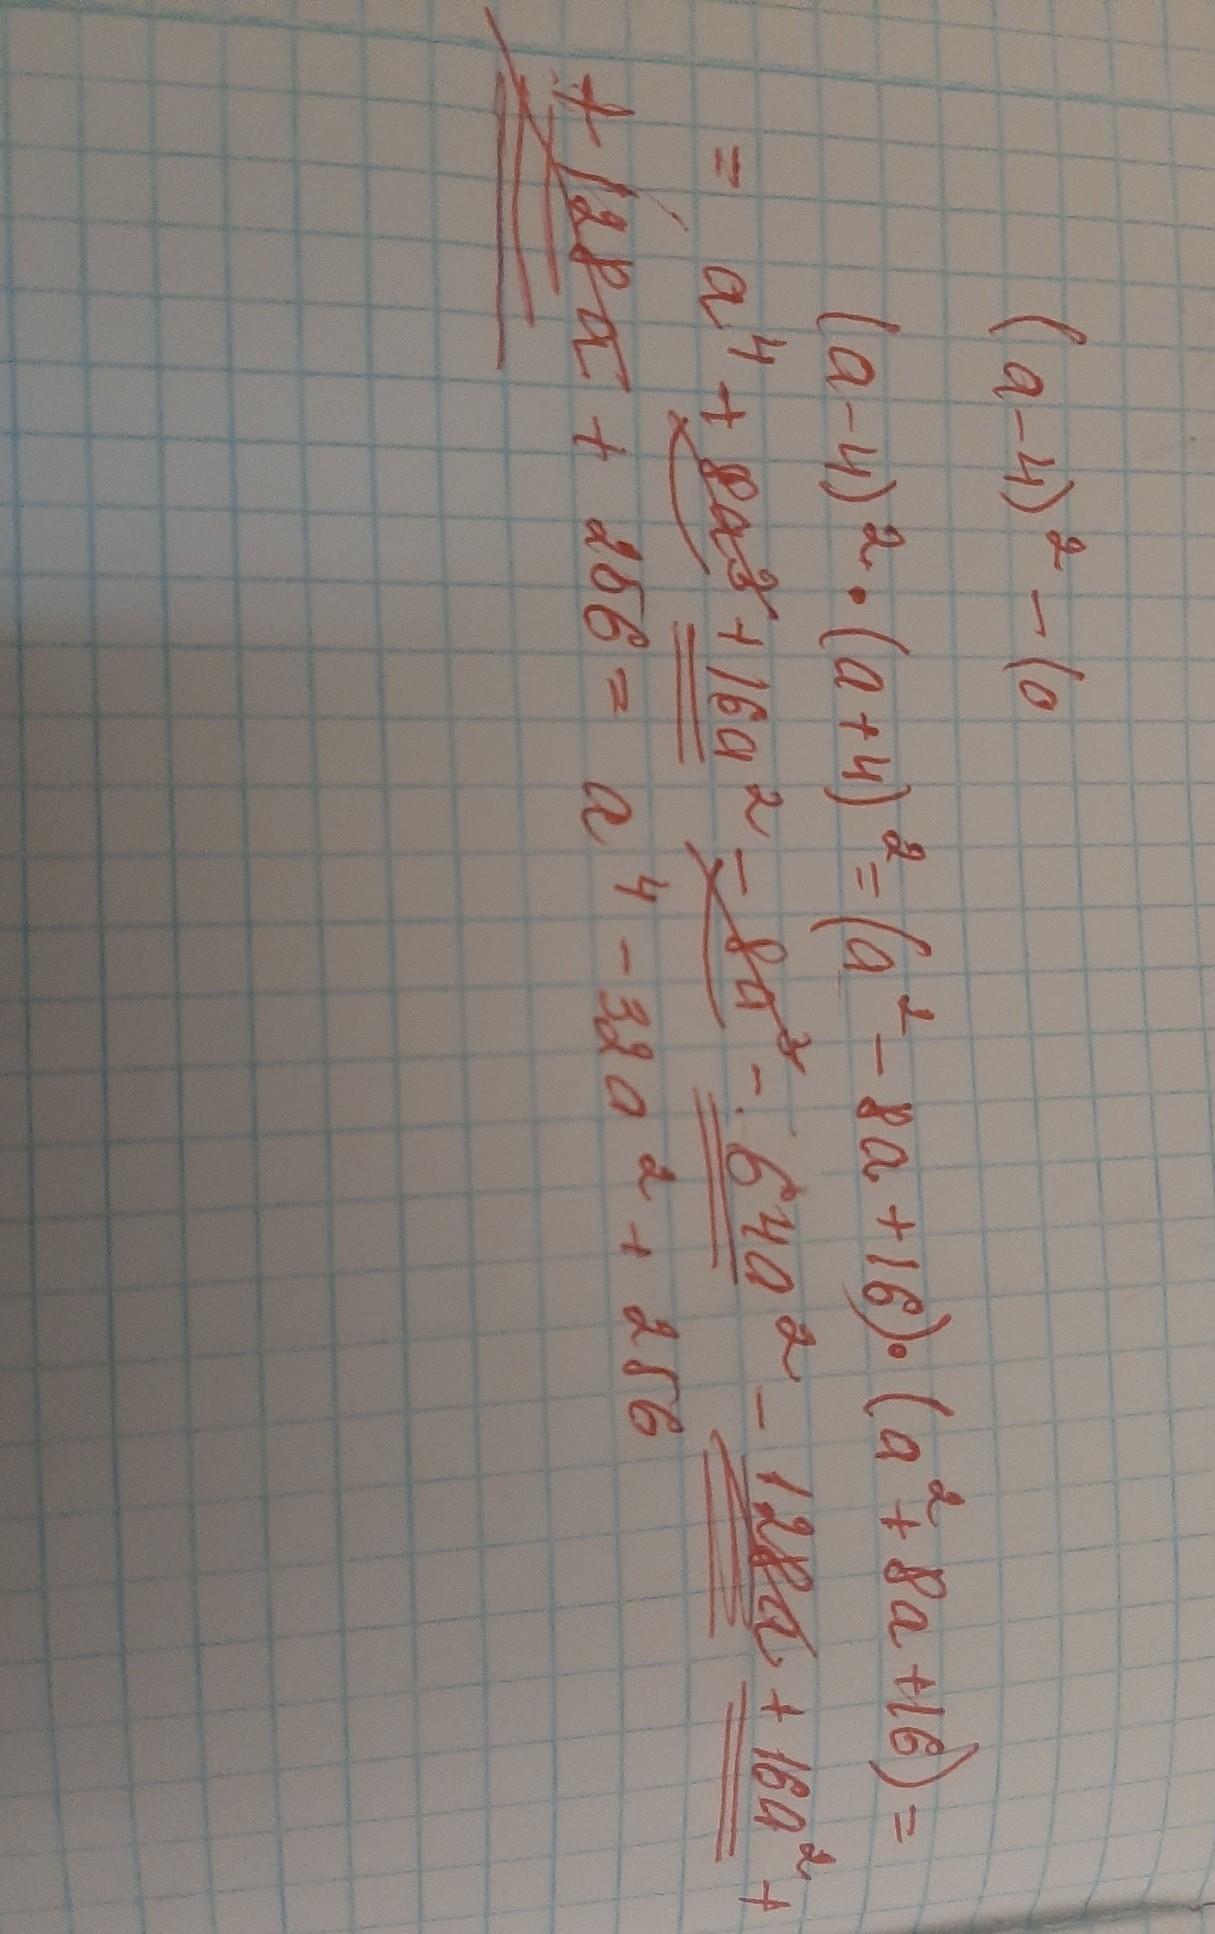 (a-4)² - (a
(a-4)² · (a+4)² = (a² - 8a + 16) · (a² + 8a + 16) =
= a⁴ + 8a³ + 16a² - 8a³ - 64a² - 128a + 16a² +
+ 128a + 256 = a⁴ - 32a² + 256